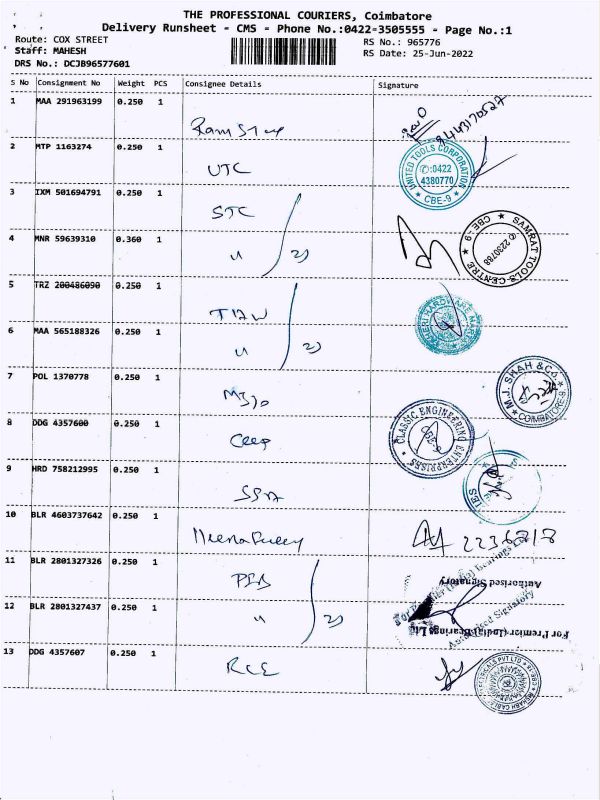 THE PROFESSIONAL COURIERS, Coimbatore
Delivery Runsheet - CMS - Phone No.:0422-3505555 - Page No.:1
Route: COX STREET
Staff: MAHESH
DRS No.: DCJB96577601
RS No.: 965776
RS Date: 25-Jun-2022
S No Consignment No Weight PCS Consignee Details Signature
1 MAA 291963199 0.250 1
2 MTP 1163274 0.250 1 UTC
UNITED TOOLS CORPORATION
✆:0422
4380770
★ CBE-9 ★
3 IXM 501694791 0.250 1 STC
4 MNR 59639310 0.360 1 " 2)
SAMRAT TOOLS CENTRE
✆ 2230788
★ CBE-9 ★
5 TRZ 200486090 0.250 1
6 MAA 565188326 0.250 1 " 2)
7 POL 1370778 0.250 1
M.J. SHAH & Co.
★ COIMBATORE-9 ★
8 DDG 4357600 0.250 1
CLASSIC ENGINEERING ENTERPRISES ★
9 HRD 758212995 0.250 1
10 BLR 4603737642 0.250 1
11 BLR 2801327326 0.250 1
Authorised Signatory
12 BLR 2801327437 0.250 1 " 2)
For Premier (India) Bearings Ltd
Authorised Signatory
13 DDG 4357607 0.250 1 RCE